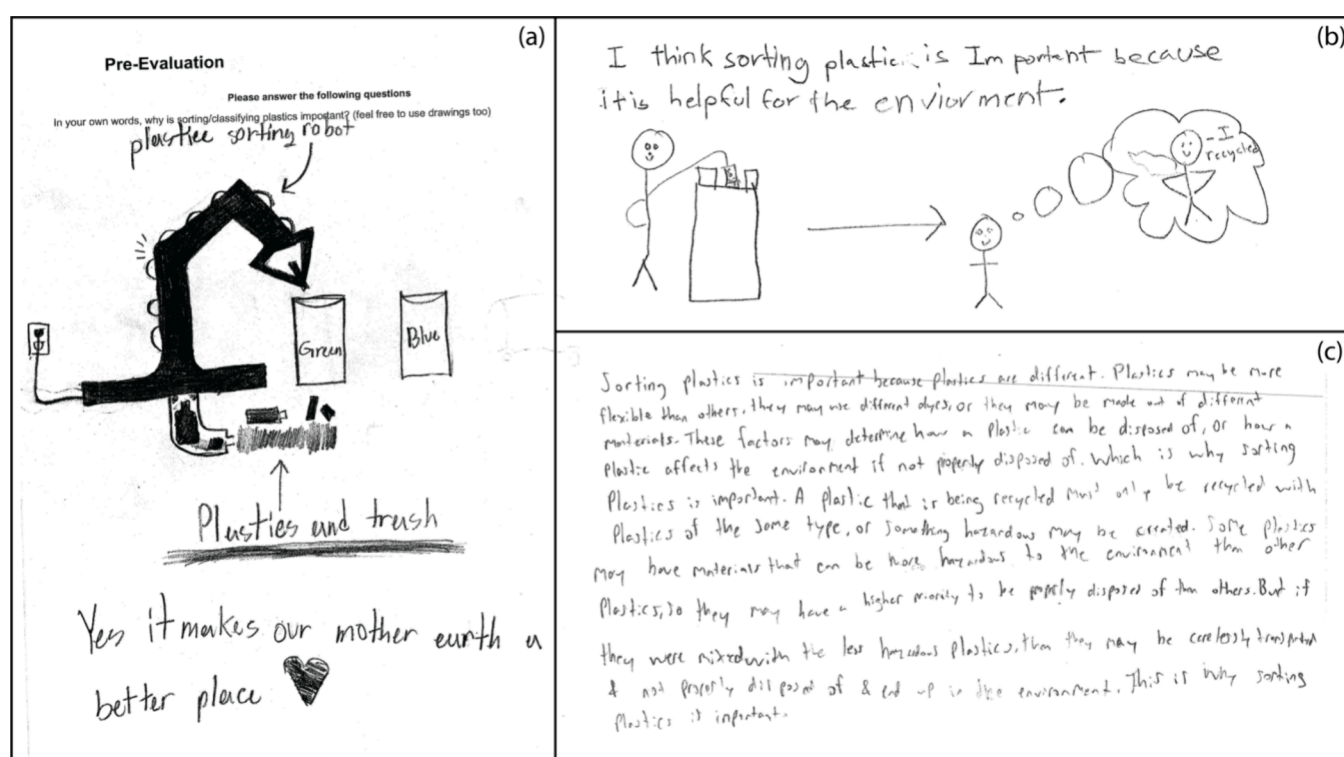 (a)
Pre-Evaluation
Please answer the following questions
In your own words, why is sorting/classifying plastics important? (feel free to use drawings too)
plasticc sorting robot
Green
Blue
Plasties and trash
Yes it makes our mother earth a
better place
(b)
I think sorting plastic is Important because
it is helpful for the enviorment.
- I
recycled
(c)
Sorting plastics is important because plastics are different. Plastics may be more
flexible than others, they may use different dyes, or they may be made out of different
materials. These factors may determine how a plastic can be disposed of, or how a
plastic affects the environment if not properly disposed of. Which is why sorting
Plastics is important. A plastic that is being recycled must only be recycled with
Plastics of the same type, or something hazardous may be created. Some plastics
may have materials that can be more hazardous to the environment than other
Plastics, so they may have a higher priority to be properly disposed of than others. But if
they were mixed with the less hazardous plastics, than they may be carelessly transported
& not properly disposed of & end up in the environment. This is why sorting
plastics is important.